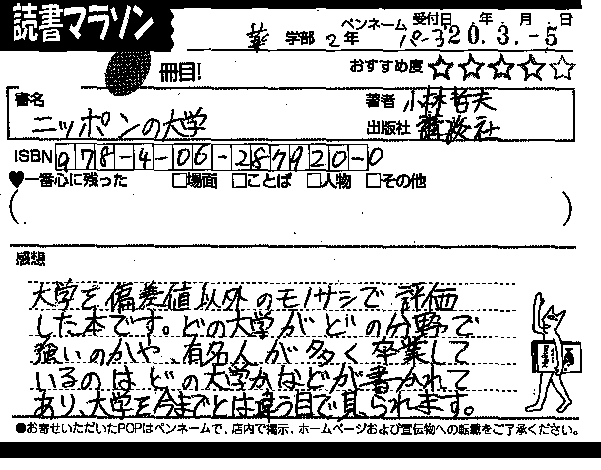 読書マラソン
薬 学部 2年 ペンネーム パーコ 受付日 年 月 日
20.3.-5
冊目! おすすめ度 ☆☆☆☆☆
書名 ニッポンの大学
著者 小林哲夫
出版社 講談社
ISBN 978-4-06-287920-0
♥一番心に残った □場面 □ことば □人物 □その他
( )
感想
大学を偏差値以外のモノサシで評価
した本です。どの大学がどの分野で
強いのかや、有名人が多く卒業して
いるのはどの大学かなどが書かれて
あり、大学を今までとは違う目で見られます。
●お寄せいただいたPOPはペンネームで、店内で掲示、ホームページおよび宣伝物への転載をご了承ください。